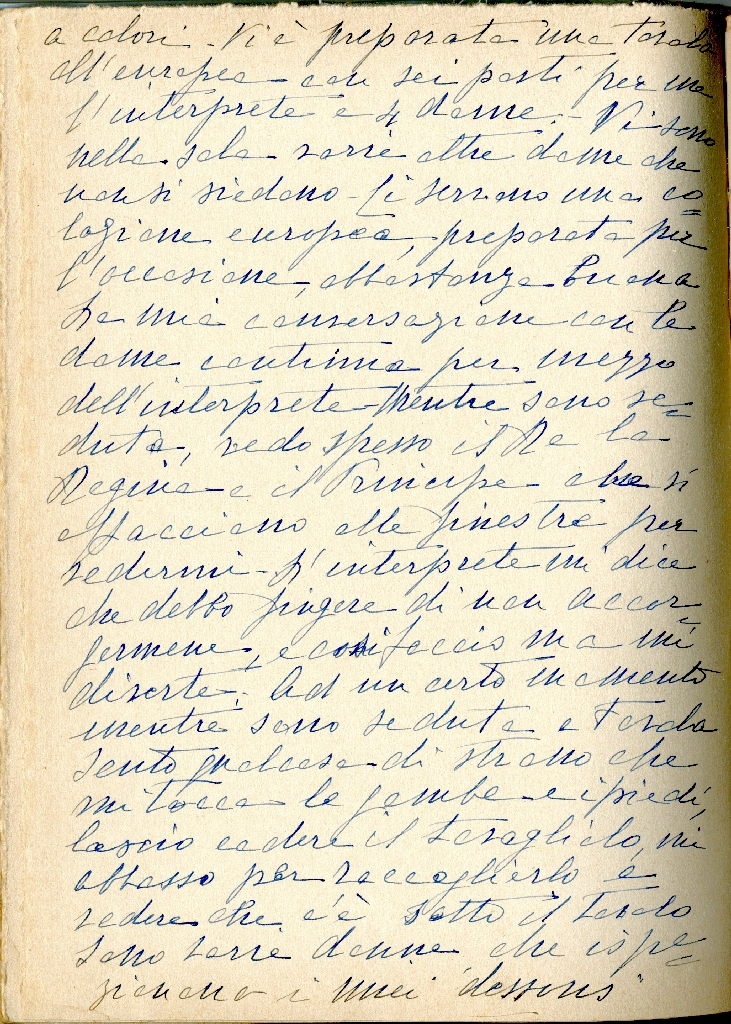 a colori - Vi è preparata una tavola
all'europea - con sei posti per me
l'interprete e 4 dame. - Vi sono
nella sala varie altre dame che
non si siedono - Ci servono una co=
lazione europea, preparata per
l'occasione, abbastanza buona
La mia conversazione con le
dame continua per mezzo
dell'interprete - Mentre sono se=
duta, vedo spesso il Re la
Regina e il Principe che si
affacciano alle finestre per
vedermi - L'interprete mi dice
che debbo fingere di non accor=
germene, e così faccio ma mi
diverte. Ad un certo momento
mentre sono seduta a tavola
sento qualcosa di strano che
mi tocca le gambe e i piedi,
lascio cadere il tovagliolo, mi
abbasso per raccoglierlo e
vedere che c'è sotto il tavolo
sono varie donne che ispe=
zionano i miei "dessous"